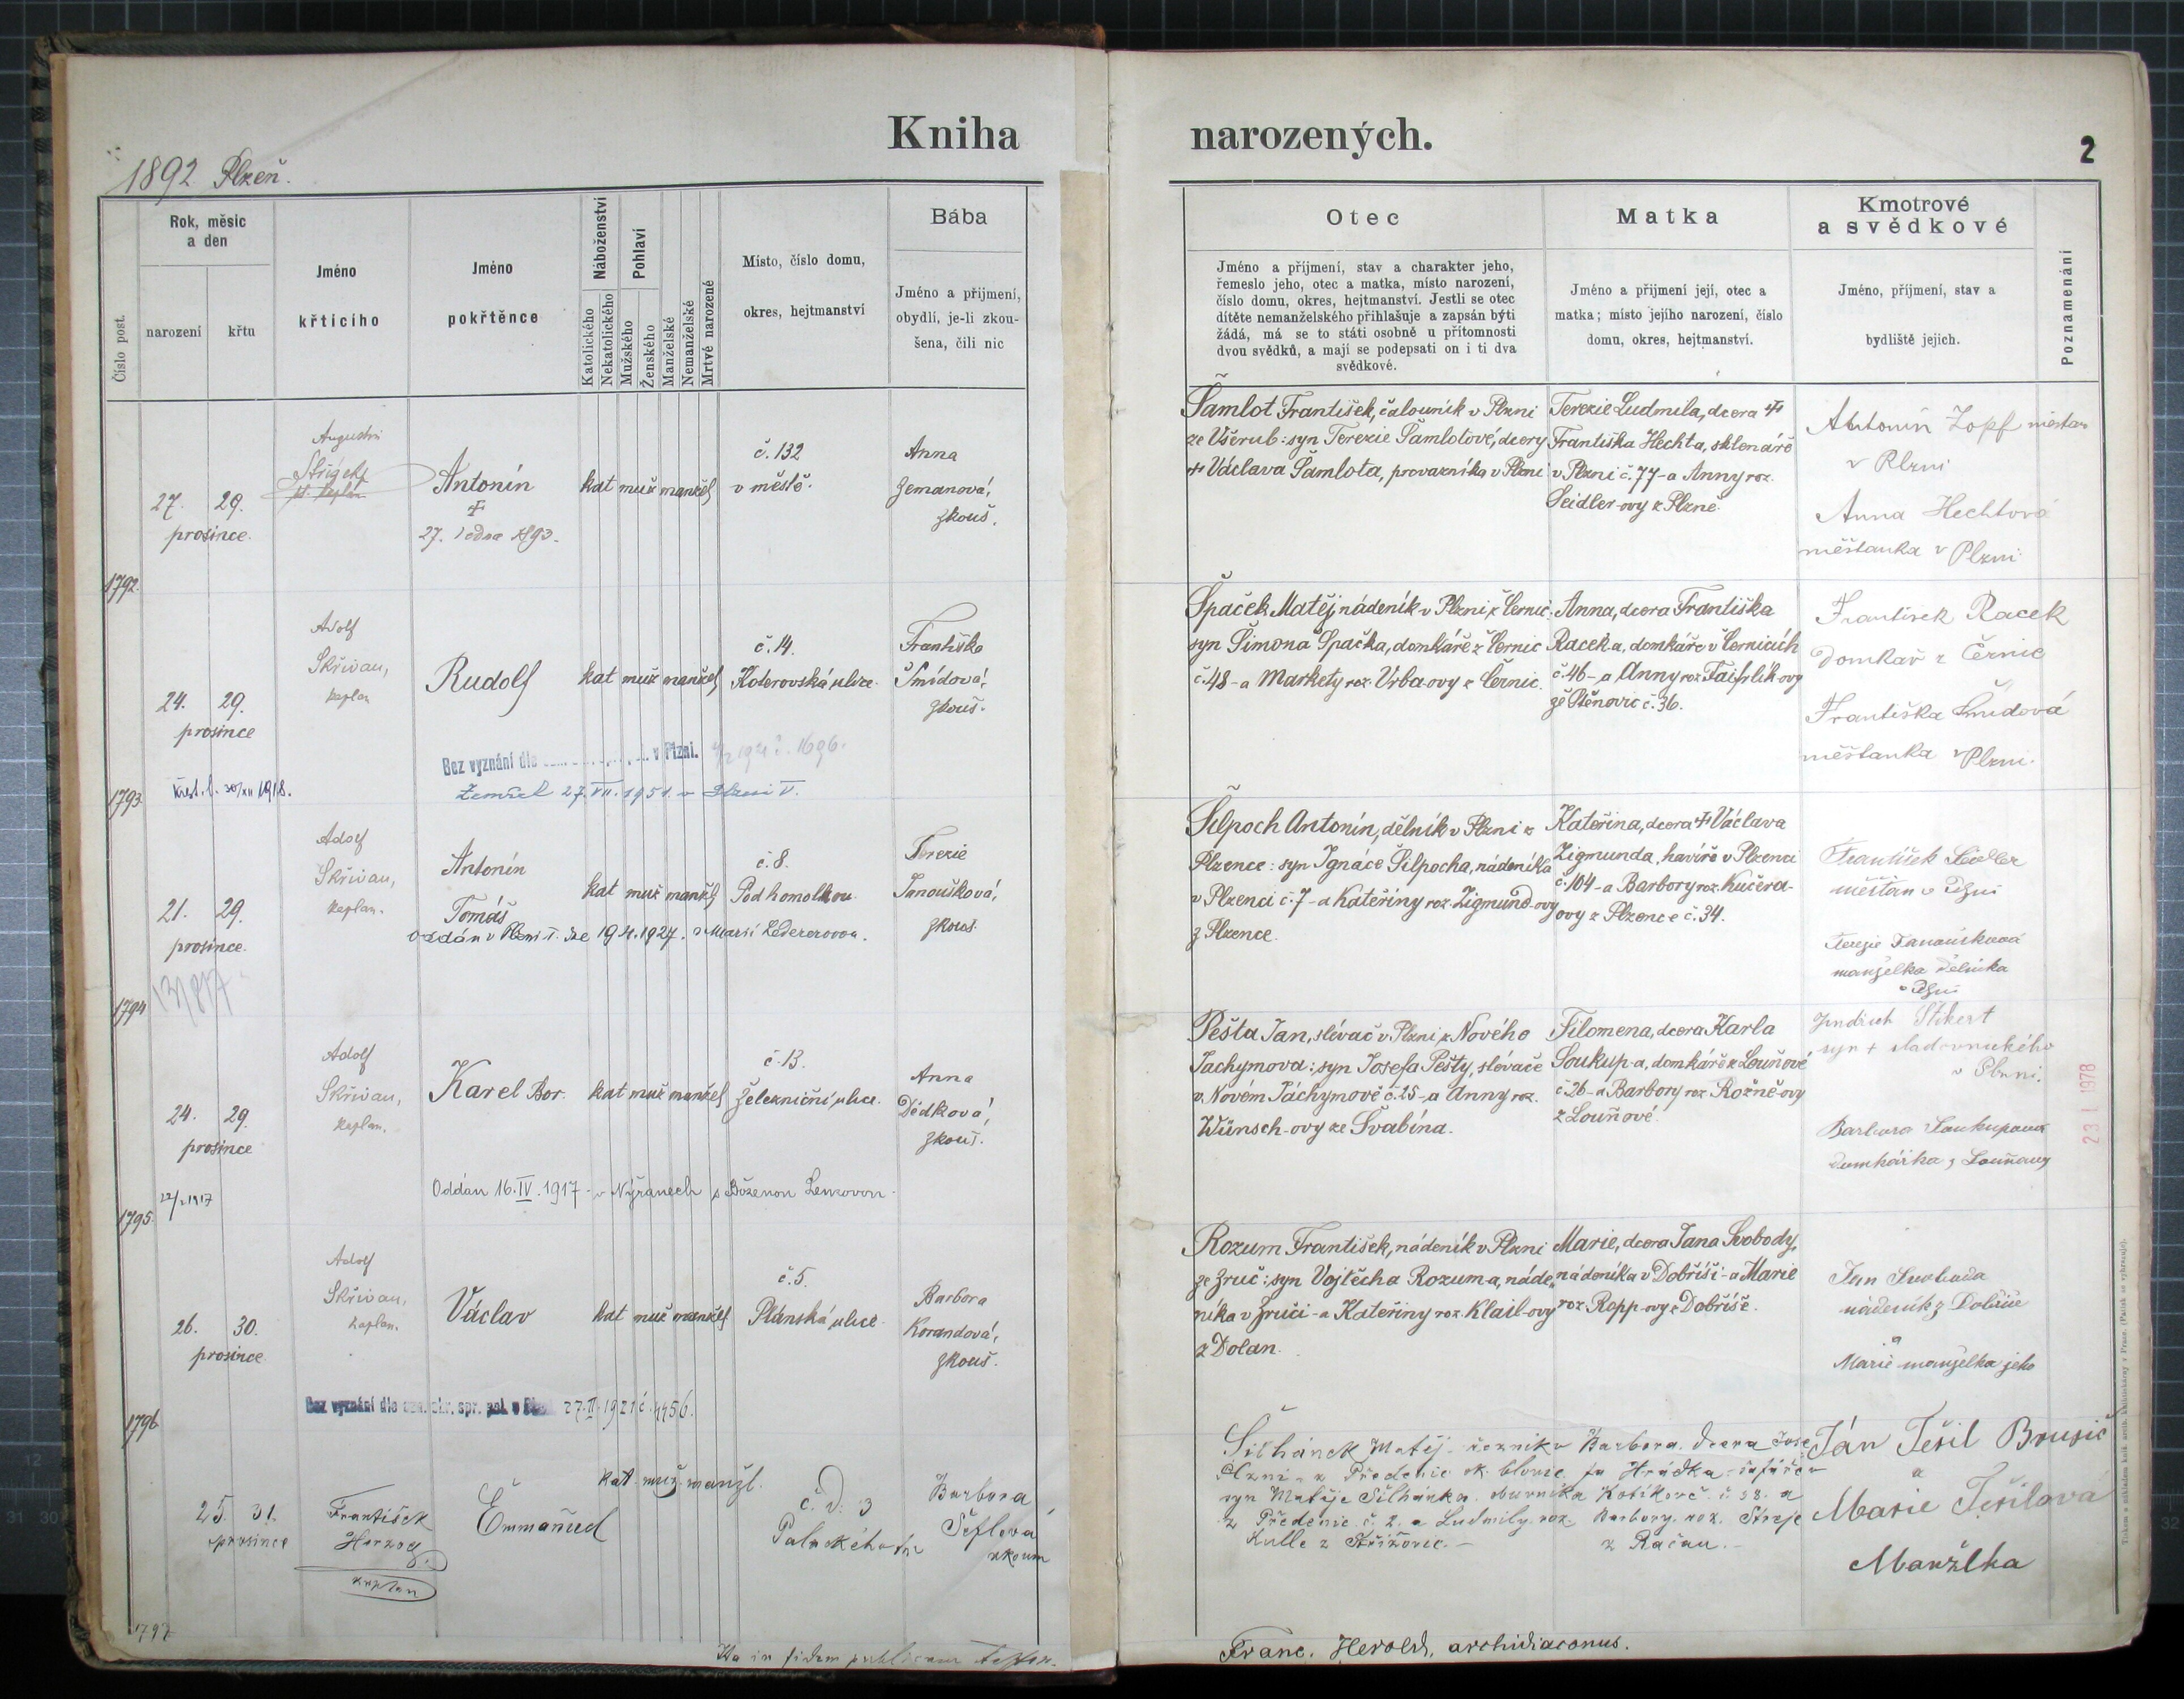 Kniha
narozených.
2
1892 Plzeň.
Číslo post.
Rok, měsíc
a den
narození
křtu
Jméno
křtícího
Jméno
pokřtěnce
Náboženství
Katolického
Nekatolického
Pohlaví
Mužského
Ženského
Manželské
Nemanželské
Mrtvě narozené
Místo, číslo domu,
okres, hejtmanství
Bába
Jméno a přijmení,
obydlí, je-li zkou-
šena, čili nic
Otec
Jméno a příjmení, stav a charakter jeho,
řemeslo jeho, otec a matka, místo narození,
číslo domu, okres, hejtmanství. Jestli se otec
dítěte nemanželského přihlašuje a zapsán býti
žádá, má se to státi osobně u přítomnosti
dvou svědků, a mají se podepsati on i ti dva
svědkové.
Matka
Jméno a přijmení její, otec a
matka; místo jejího narození, číslo
domu, okres, hejtmanství.
Kmotrové
a svědkové
Jméno, příjmení, stav a
bydliště jejich.
Poznamenání
1792
27. 29.
prosince.
Augustin
Antonín
✝
27. ledna 1893.
kat muž manžel
č. 132
v městě.
Anna
Zemanová,
zkouš.
Šamlot František, čalouník v Plzni
ze Všerub: syn Terezie Šamlotové, dcery
✝ Václava Šamlota, provazníka v Plzni
Terezie Ludmila, dcera ✝
Františka Hechta, sklenáře
v Plzni č. 77 - a Anny roz.
Seidler-ovy z Plzně.
Antonín Zopf měšťan
v Plzni
Anna Hechtová
měšťanka v Plzni
1793
24. 29.
prosince
Adolf
Skřivan,
kaplan
Rudolf
kat muž manžel
č. 14.
Koterovská ulice.
Františka
Šmídová,
zkouš.
Křest. l. 30/XII 1918.
Bez vyznání dle v Plzni. 1921 č. 1696.
Zemřel 27. VII. 1951. v Plzni V.
Špaček Matěj, nádeník v Plzni z Černic:
syn Šimona Špačka, domkáře z Černic
č. 48 - a Markety roz. Vrba-ovy z Černic.
Anna, dcera Františka
Racek a, domkáře v Černicích
č. 46 - a Anny roz. Faifrlík-ovy
ze Štěnovic č. 36.
František Racek
domkař z Černic
Františka Šmídová
měšťanka v Plzni.
1794
21. 29.
prosince.
Adolf
Skřivan,
kaplan.
Antonín
Tomáš
oddán v Plzni I. dne 19.4.1927. s Marií Ledererovou.
kat muž manžel
č. 8.
Pod homolkou
Terezie
Janoušková,
zkouš.
Šilpoch Antonín, dělník v Plzni z
Plzence: syn Ignáce Šilpocha, nádeníka
v Plzenci č. 7 - a Kateřiny roz. Zigmund-ovy
z Plzence.
Kateřina, dcera ✝ Václava
Zigmunda, havíře v Plzenci
č. 104 - a Barbory roz. Kučera-
ovy z Plzence č. 34.
František Seidler
měšťan v Plzni
Terezie Janoušková
manželka dělníka
v Plzni
1795
24. 29.
prosince
Adolf
Skřivan,
kaplan.
Karel Bor.
kat muž manžel
č. 13.
Železniční ulice.
Anna
Dědková,
zkouš.
1917
Oddán 16. IV. 1917 - v Nýřanech s Boženou Lenzovou
Pešta Jan, slévač v Plzni z Nového
Jáchymova: syn Josefa Pešty, slévače
v Novém Jáchymově č. 25 - a Anny roz.
Wünsch-ovy ze Švabína.
Filomena, dcera Karla
Soukup-a, domkáře z Louňové
č. 26 - a Barbory roz. Rožně-ovy
z Louňové.
Jindřich Stikert
syn ✝ sladovnického
v Plzni.
Barbora Soukupová
domkářka z Louňový
23 I 1978
1796
26. 30.
prosince
Adolf
Skřivan,
kaplan.
Václav
kat muž manžel
č. 5.
Plánská ulice
Barbora
Korandová,
zkouš.
Bez vyznání dle okr. spr. pol. v 27. II. 1921 č. 4456.
Rozum František, nádeník v Plzni
ze Zruč: syn Vojtěcha Rozuma, náde-
níka v Zruči - a Kateřiny roz. Klail-ovy
z Dolan.
Marie, dcera Jana Svobody,
nádeníka v Dobříši - a Marie
roz. Ropp-ovy z Dobříše.
Jan Svoboda
nádeník z Dobříše
a
Marie manželka jeho
1797
25. 31.
prosince
František
Herzog
kaplan
Emmanuel
kat. muž. manžl.
č. d. 3
Palackého tř.
Barbora
Šeflová
zkoum
Šilhánek Matěj - řezník v
Plzni - z Předenic ok. blovic.
syn Matěje Šilhánka.
z Předenic č. 2. a Ludmily roz.
Kulle z Střížovic. -
Barbora. dcera Jose
fa Hrádka - šafáře v
Kotíkově č. 38. a
Barbory. roz. Streje
z Račan. -
Ján Tešil Brusič
a
Marie Tešilová
Manželka
Ita in fidem publicam testor.
Franc. Herold, archidiaconus.